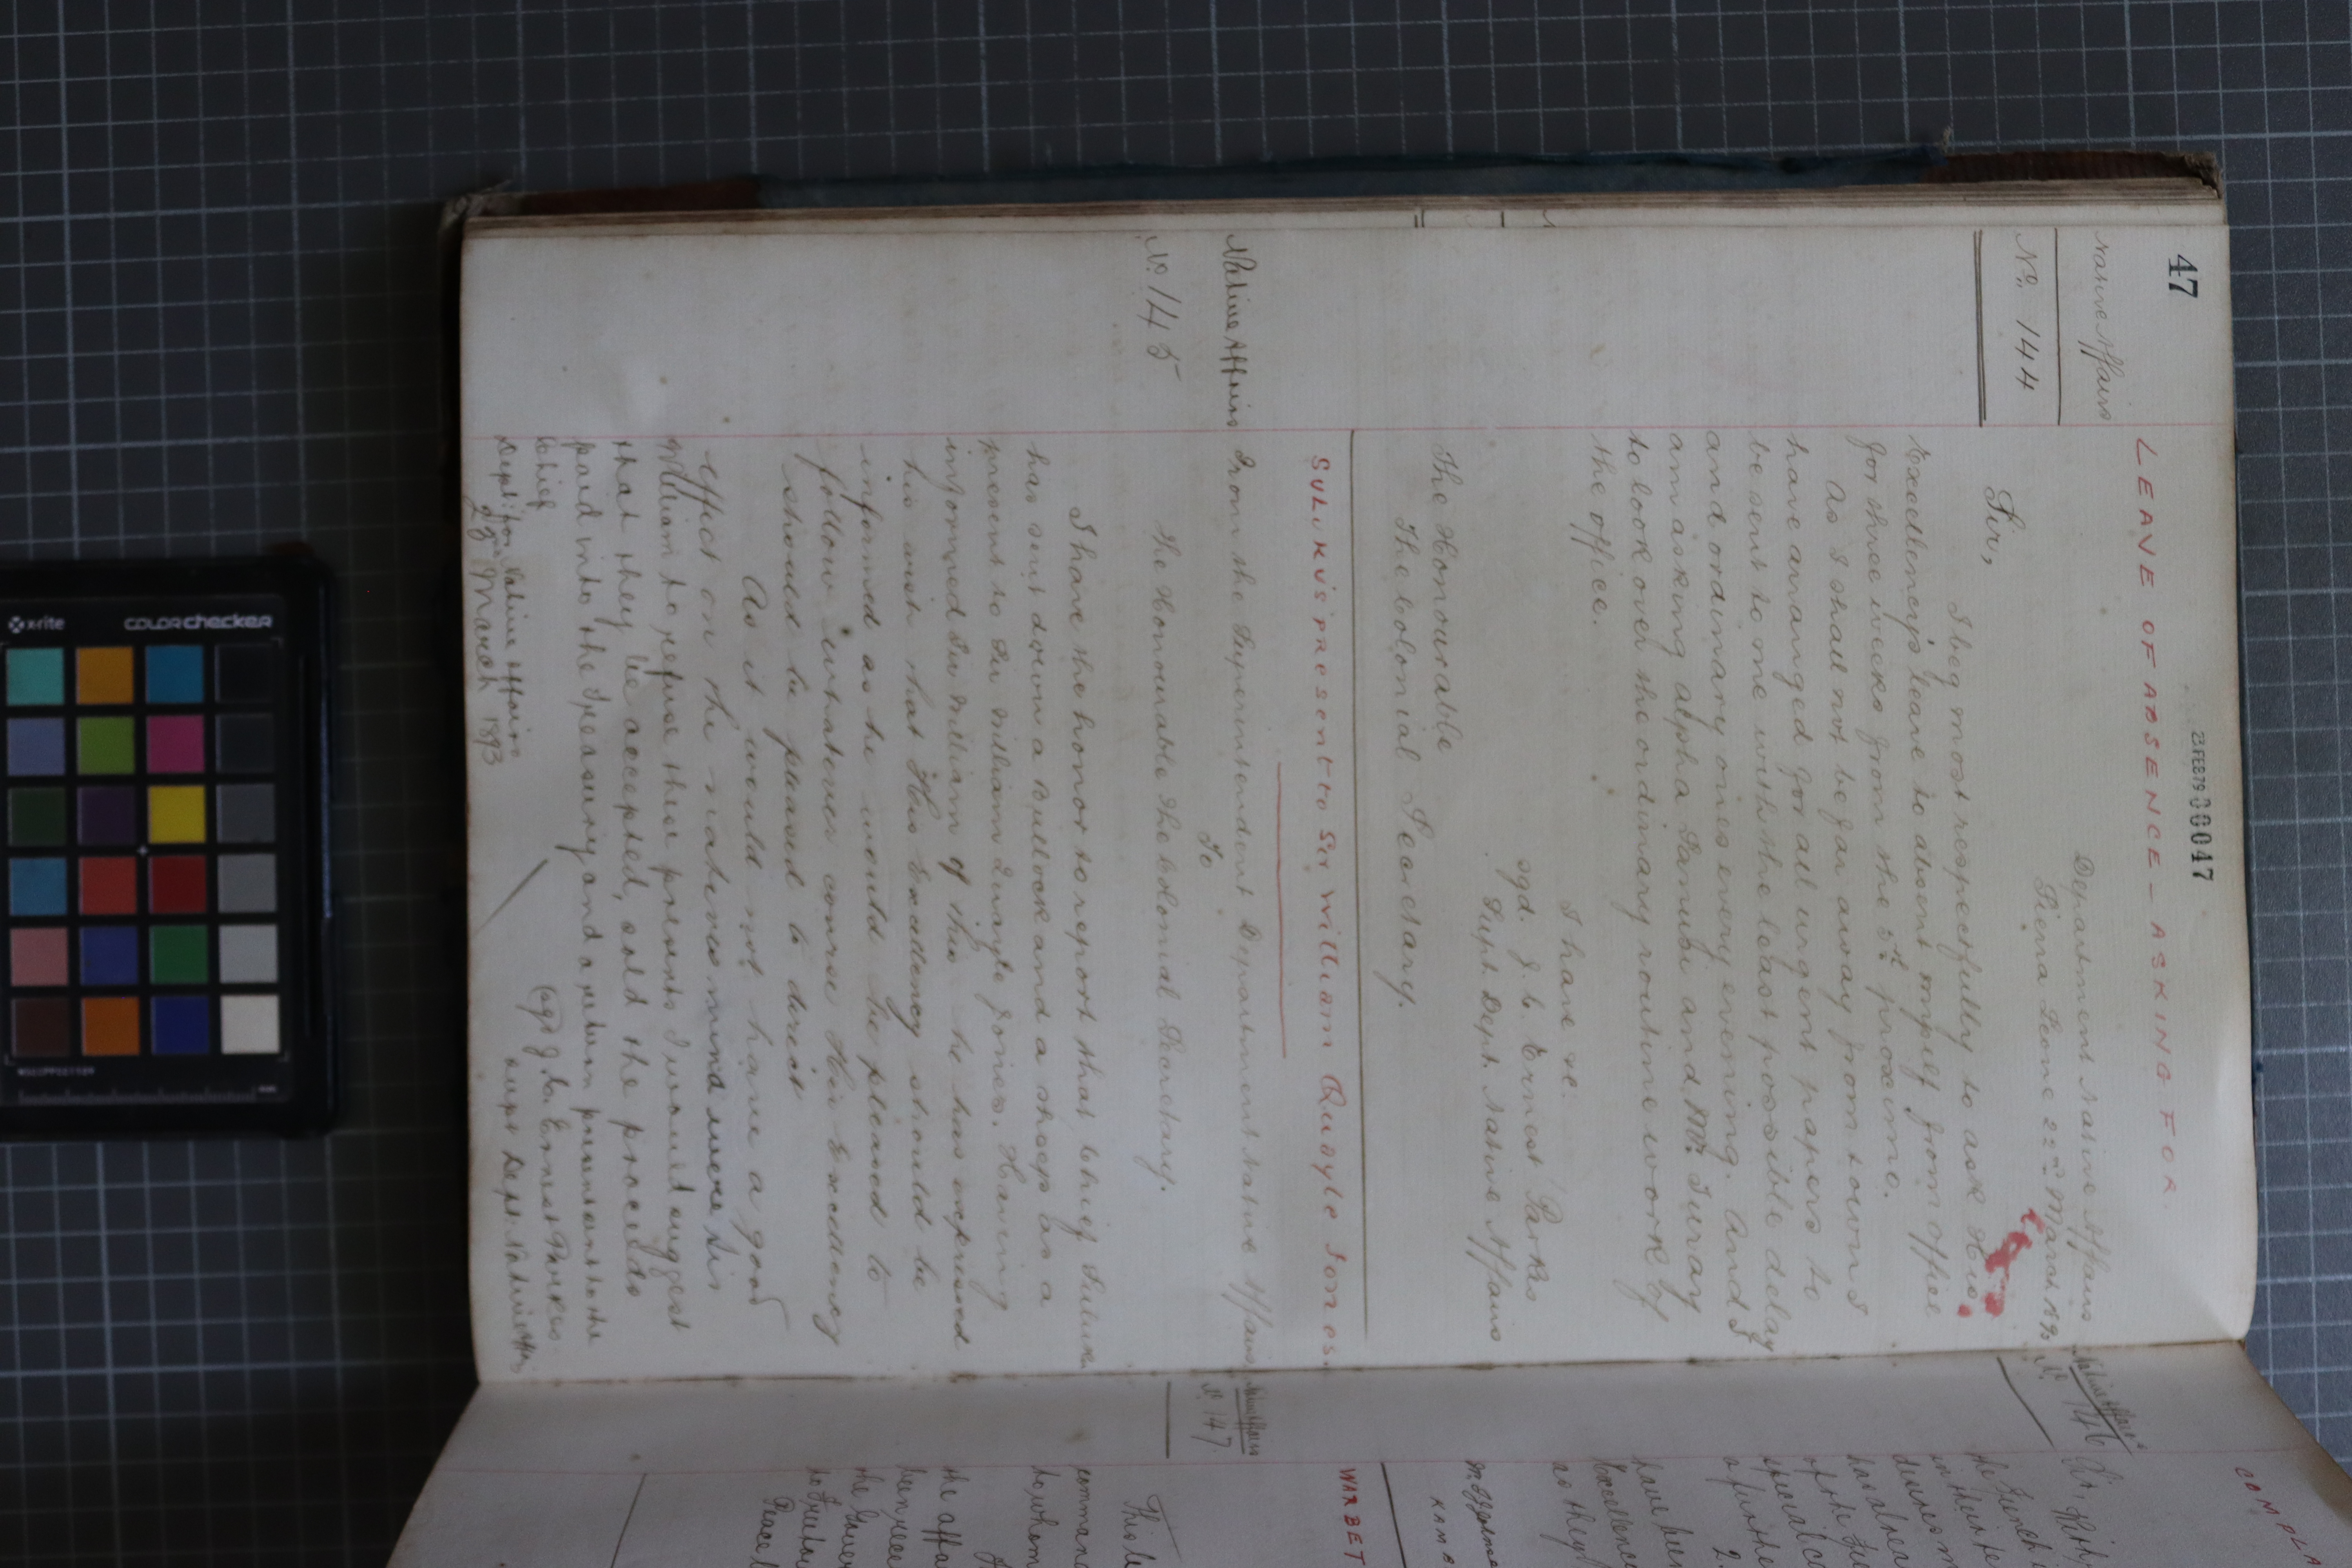 47
23 FEB 79 00047
LEAVE OF ABSENCE - ASKING FOR
Native Affairs
Nº. 144
Department Native Affairs
Sierra Leone 22nd March 1893
Sir,
I beg most respectfully to ask His
Excellency's leave to absent myself from office
for three weeks from the 5th proximo.
As I shall not be far away from town I
have arranged for all urgent papers to
be sent to me with the least possible delay
and ordinary ones every evening. And I
am asking Alpha Sanusi and Mr. Turay
to look over the ordinary routine work of
the office.
I have &c.
sgd. J. C. Ernest Parkes
Supt. Dept. Native Affairs
The Honourable
The Colonial Secretary.
SULUKU's present to Sir William Quayle Jones.
Native Affairs
No. 145
From the Superintendent Department Native Affairs
To
The Honourable the Colonial Secretary.
I have the honor to report that Chief Suluku
has sent down a bullock and a sheep as a
present to Sir William Quayle Jones. Having
informed Sir William of this he has expressed
his wish that His Excellency should be
informed as he would be pleased to
follow whatever course His Excellency
should be pleased to direct
As it would not have a good
effect on the natives mind were Sir
William to refuse their presents I would suggest
that they be accepted, sold the proceeds
paid into the Treasury and a return present sent the
Chief
(sgd) J. C. Ernest Parkes
Supt Dept. Native Affrs
Dept: for Native Affairs
23rd March 1893
COMPLA
Native Affairs
Nº 146
Sir,
M. Offlonmee
KAMB
WARBET
Native Affairs
Nº. 147
command
to whom
the affa